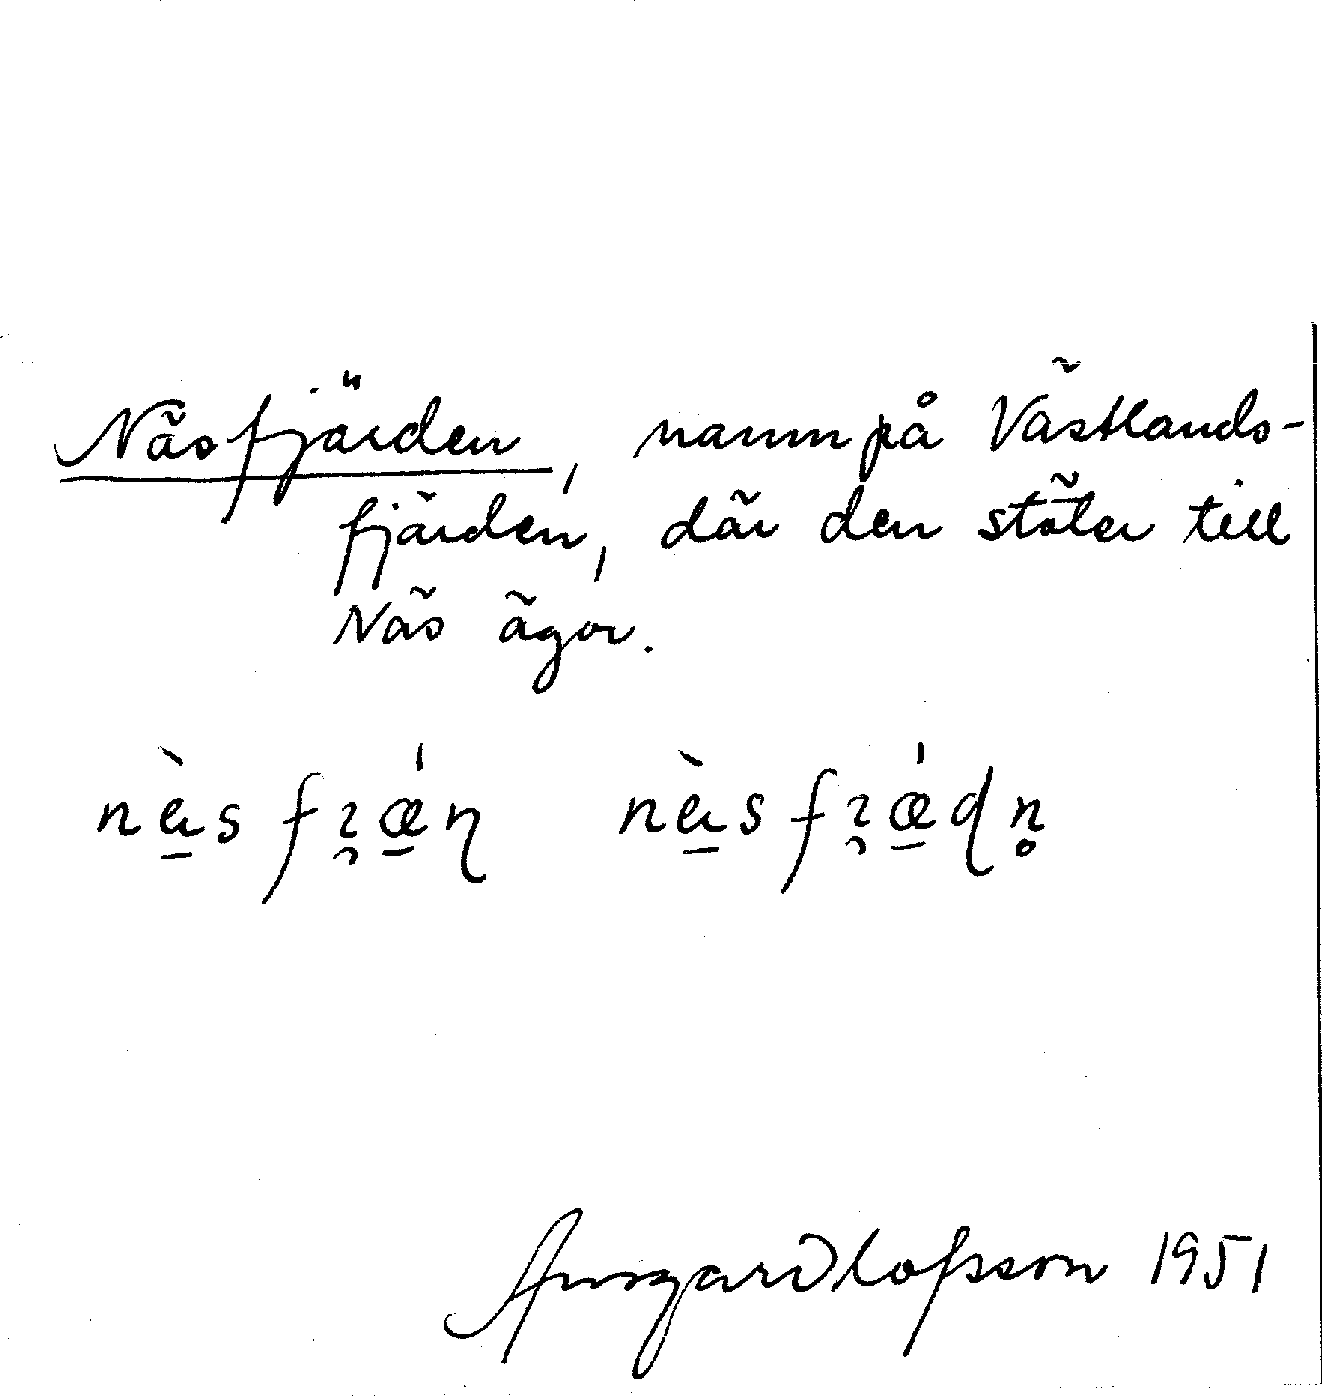 Näsfjärden, namn på Västlands-
fjärden, där den stöter till
Näs ägor.
Ansgar Olofsson 1951